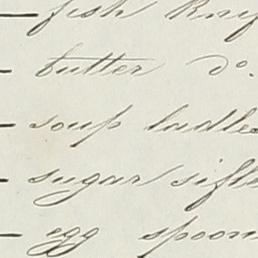 — fish Kni
— butter do.
— soup ladle
— sugar sift
— egg spoon